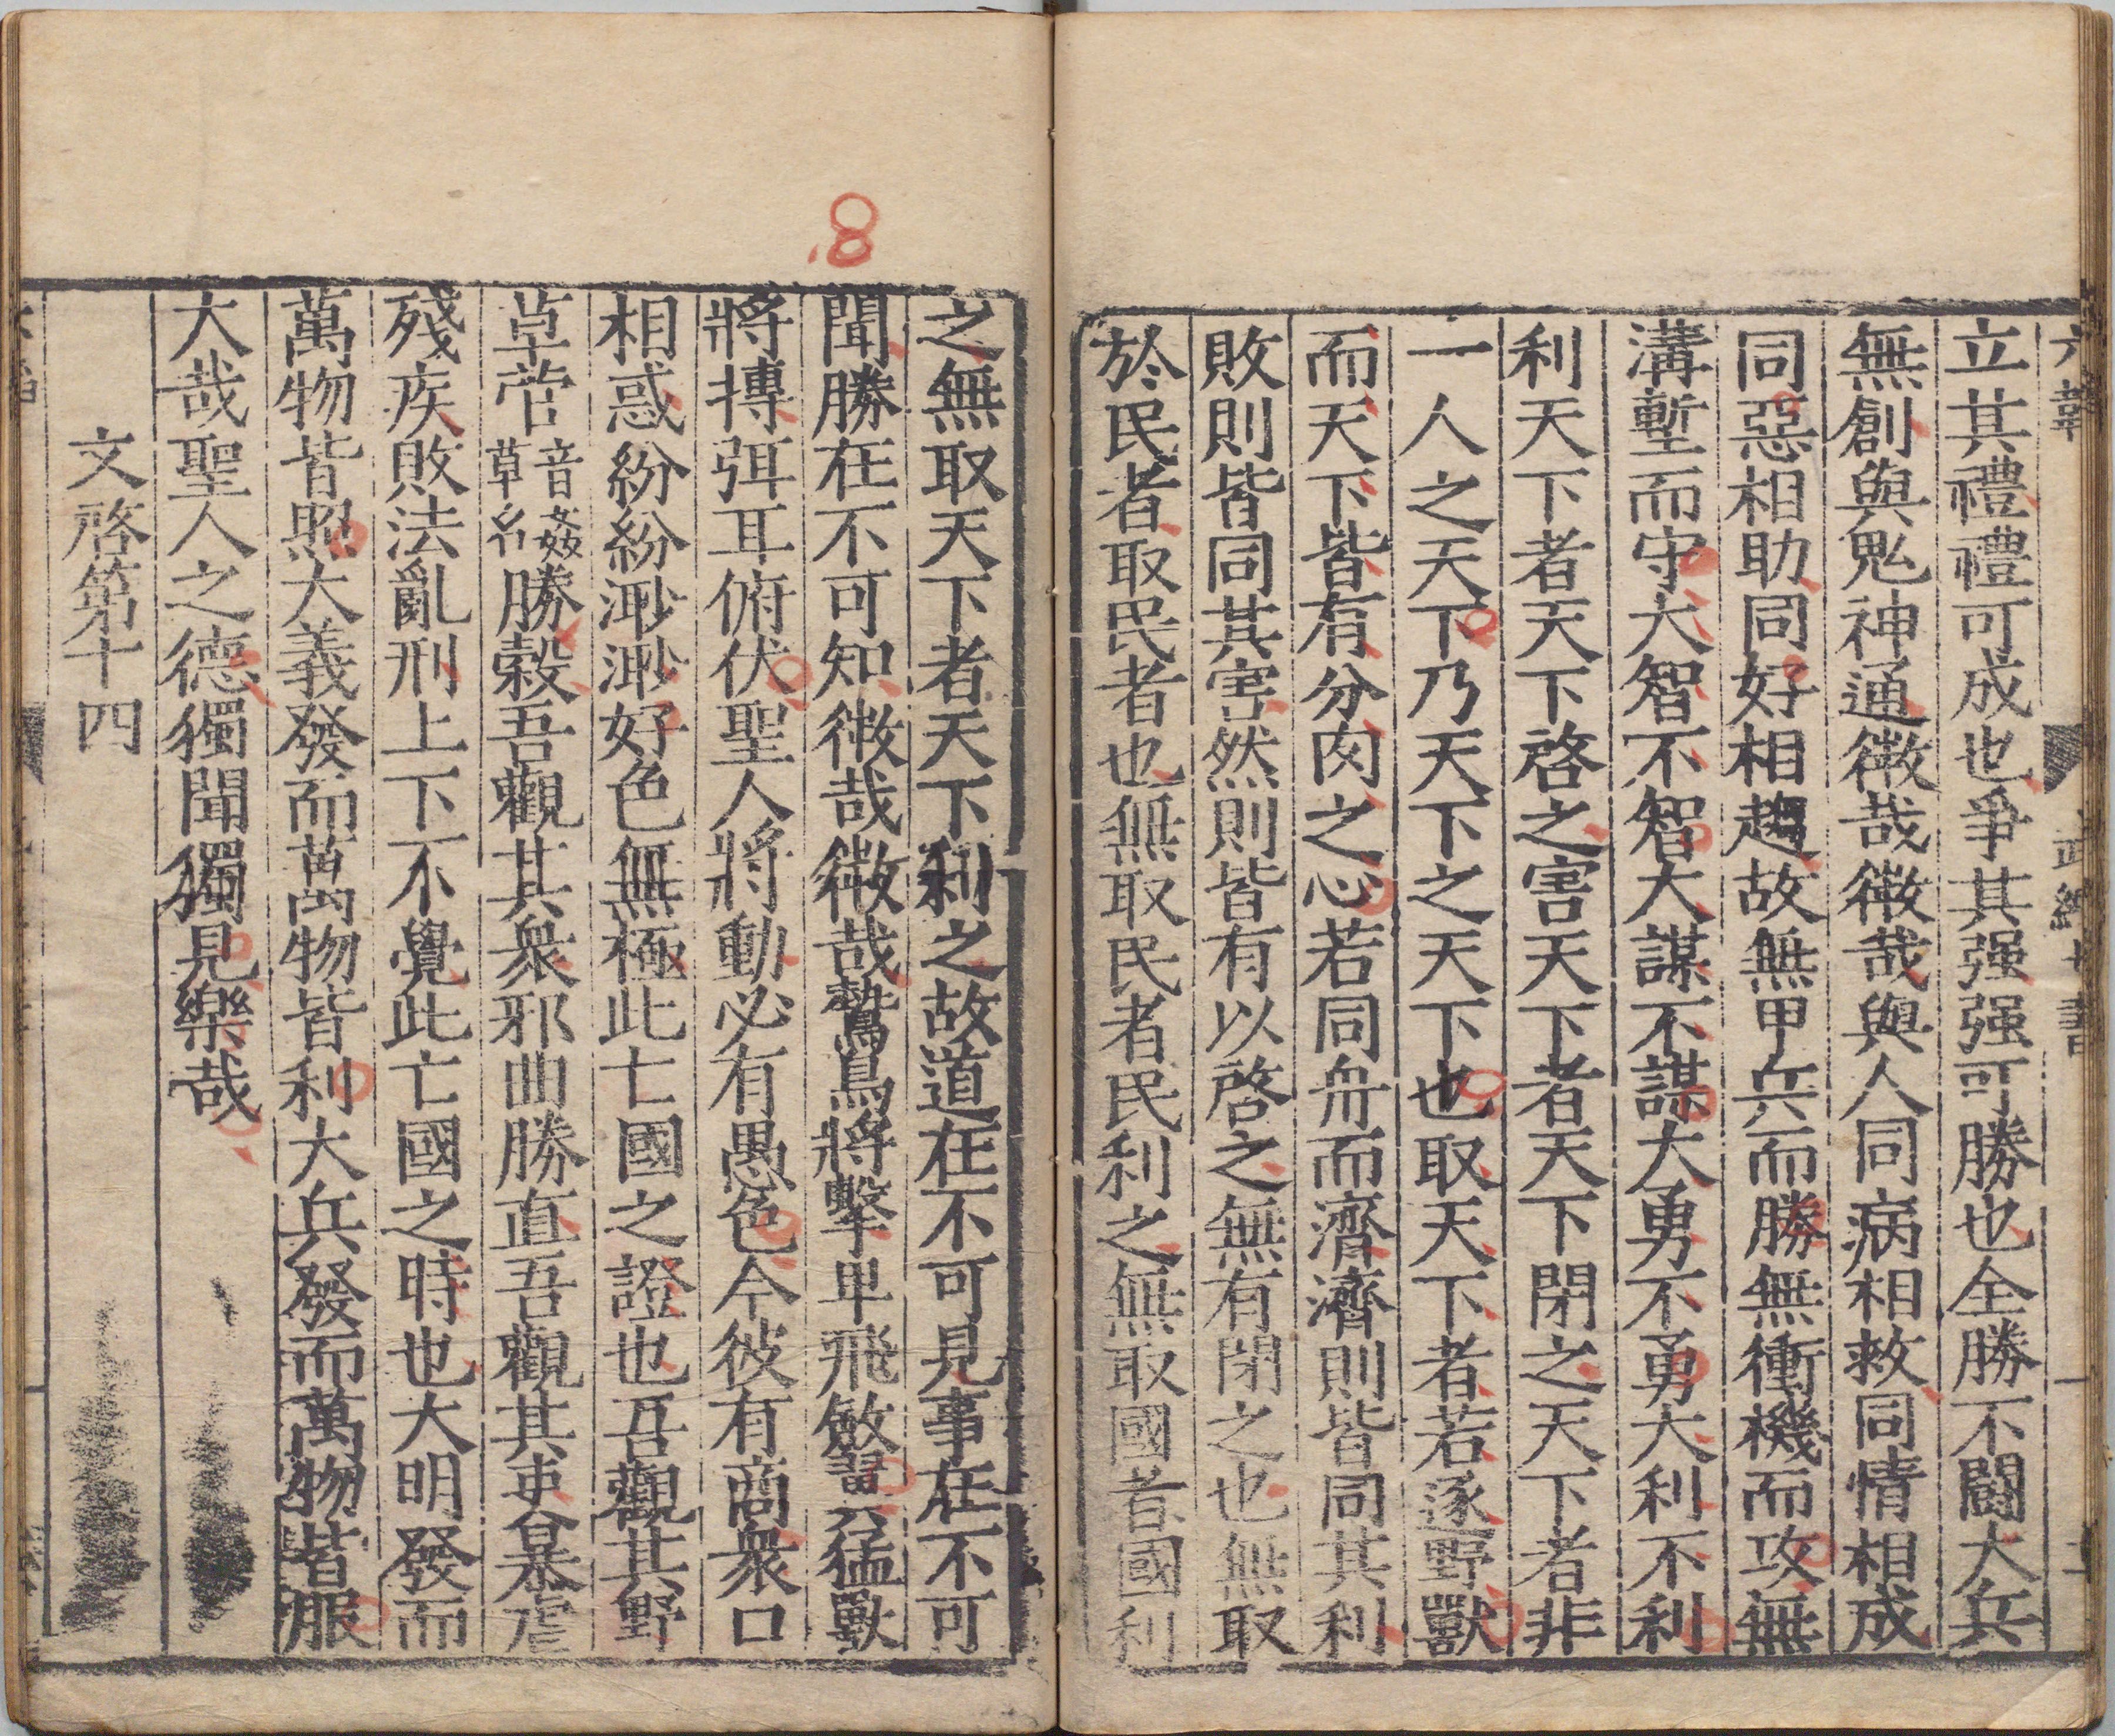 立其禮禮可成也爭其强强可勝也全勝不鬪大兵
無創與鬼神通微哉微哉與人同病相救同情相成
同惡相助同好相趨故無甲兵而勝無衝機而攻無
溝塹而守大智不智大謀不謀大勇不勇大利不利
利天下者天下啓之害天下者天下閉之天下者非
一人之天下乃天下之天下也取天下者若逐野獸
而天下皆有分肉之心若同舟而濟濟則皆同其利
敗則皆同其害然則皆有以啓之無有閉之也無取
於民者取民者也無取民者民利之無取國者國利
之無取天下者天下利之故道在不可見事在不可
聞勝在不可知微哉微哉鷙鳥將擊卑飛斂翼猛獸
將搏弭耳俯伏聖人將動必有愚色今彼有商衆口
相惑紛紛渺渺好色無極此亡國之證也吾觀其野
草菅音姦草名勝穀吾觀其衆邪曲勝直吾觀其吏暴虐
殘疾敗法亂刑上下不覺此亡國之時也大明發而
萬物皆照大義發而萬物皆利大兵發而萬物皆服
大哉聖人之德獨聞獨見樂哉
文啓第十四